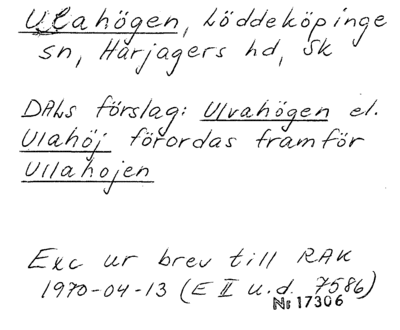 Ulahögen, Löddeköpinge
sn, Harjagers hd, Sk
DALs förslag: Ulvahögen el.
Ulahöj förordas framför
Ullahojen
Exc ur brev till RAK
1970-04-13 (E II u.d. 7586)
Nr 17306